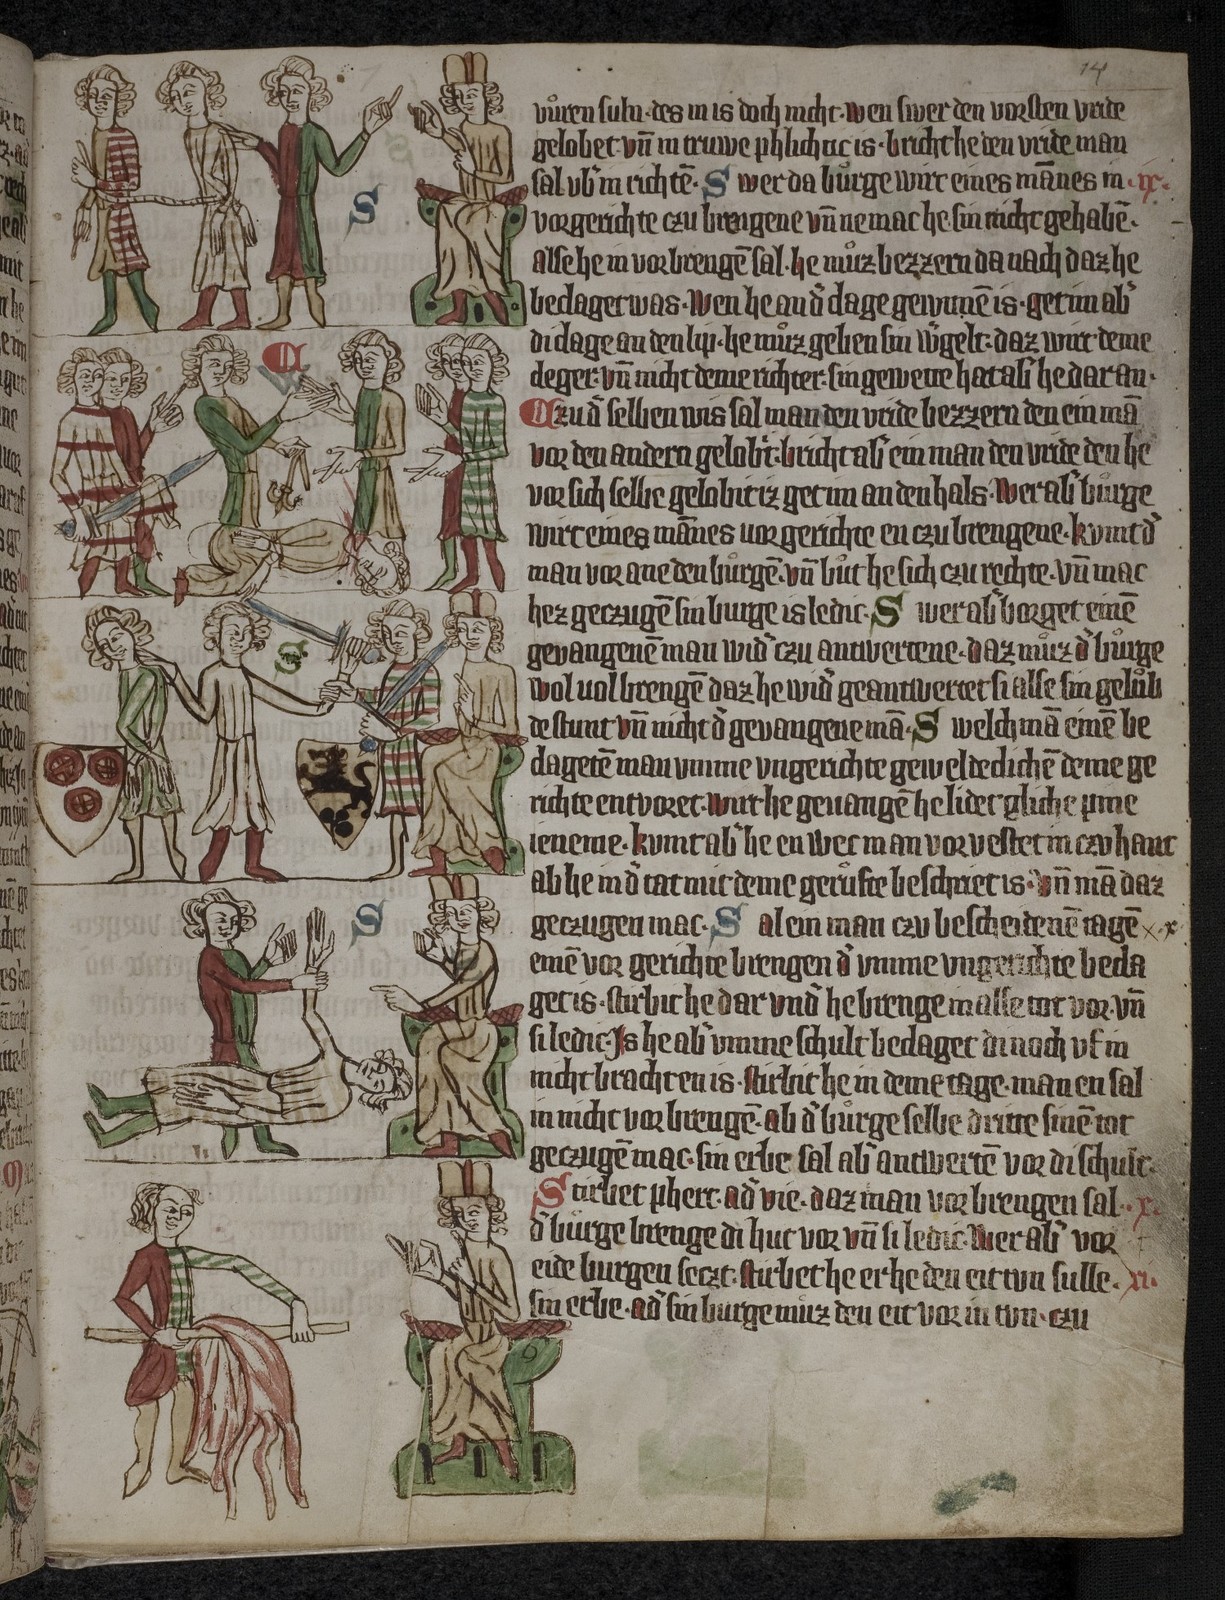 14
vůren suln. des in is doch nicht. wen swer den vorsten vride
gelobet. vn̄ in truwe phlichtic is. bricht he den vride man
sal vb' in richtē. S wer da bůrge wirt eines mānes in .ix.
vorgerichte czu brengene vn̄ ne mac he sin nicht gehabē.
alse he in vor brengē sal. he můz bezzern da nach daz he
bedaget was. Wen he an d' dage gewunnē is. get im ab'
di dage an den lip. he můz geben sin w'gelt. daz wirt deme
cleger. vn̄ nicht deme richter. sin gewette hat ab' he dar an.
Czu d' selben wis sal man den vride bezzern den ein mā
vor den andern gelobt. bricht ab' ein man den vride den he
vor sich selbe gelobit iz get im an den hals. Wer ab' bůrge
wirt eines mānes vor gerichte en czu brengene. kvmt d'
man vor ane den bůrgē. vn̄ bůt he sich czu rechte. vn̄ mac
hez geczugē sin burge is ledic. S wer ab' borget einē
gevangenē man wid' czu antwertene. daz můz d' bůrge
wol vol brengē daz he wid' geantwertet si alse sin gelůb
de stunt vn̄ nicht d' gevangene mā. S welch mā einē be
dagetē man vmme vngerichte geweldiclichē deme ge
richte entvoret. wirt he gevangē he lidet gliche pine
ieneme. kvmt ab' he en wec man vorvestet in czv hant
ab he in d' tat mit deme gerůfte beschriet is. vn̄ mā daz
geczugen mac. S al ein man czv bescheidenē tagē x
einē vor gerichte brengen d' vmme vngerichte beda
get is. stirbit he dar vnd' he brenge in alse tot vor. vn̄
si ledic. Is he ab' vmme schult bedaget di noch vf in
nicht bracht en is. stirbit he in deme tage. man en sal
in nicht vor brengē. ab d' bůrge selbe dritte sinē tot
geczugē mac. sin erbe sal ab' antwertē vor di schult.
Stirbet phert. ad' vie. daz man vor brengen sal. .x.
d' bůrge brenge di hut vor vn̄ si ledic. Wer ab' vor
eide burgen seczt. stirbet he er he den eit tvn sulle. .xi.
sin erbe. ad' sin burge můz den eit vor in tvn. czu